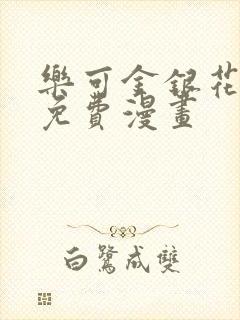 樂可金銀花
免費漫畫
白鷺成雙